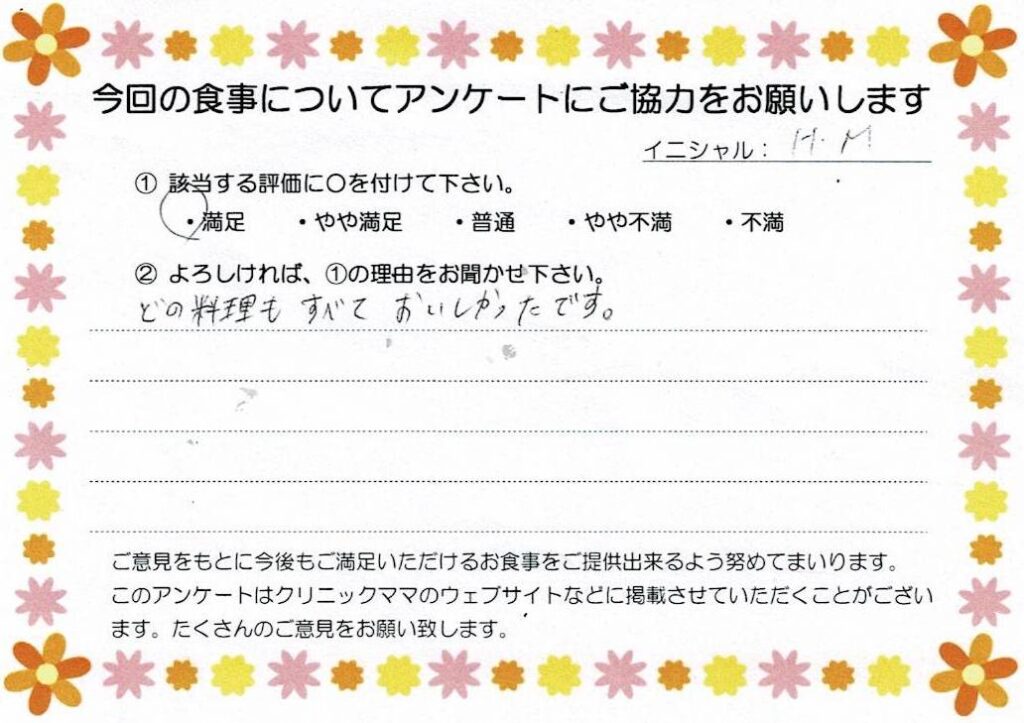 今回の食事についてアンケートにご協力をお願いします
イニシャル： H.M
① 該当する評価に〇を付けて下さい。
・満足 ・やや満足 ・普通 ・やや不満 ・不満
② よろしければ、①の理由をお聞かせ下さい。
どの料理も すべて おいしかったです。
ご意見をもとに今後もご満足いただけるお食事をご提供出来るよう努めてまいります。
このアンケートはクリニックママのウェブサイトなどに掲載させていただくことがござい
ます。たくさんのご意見をお願い致します。